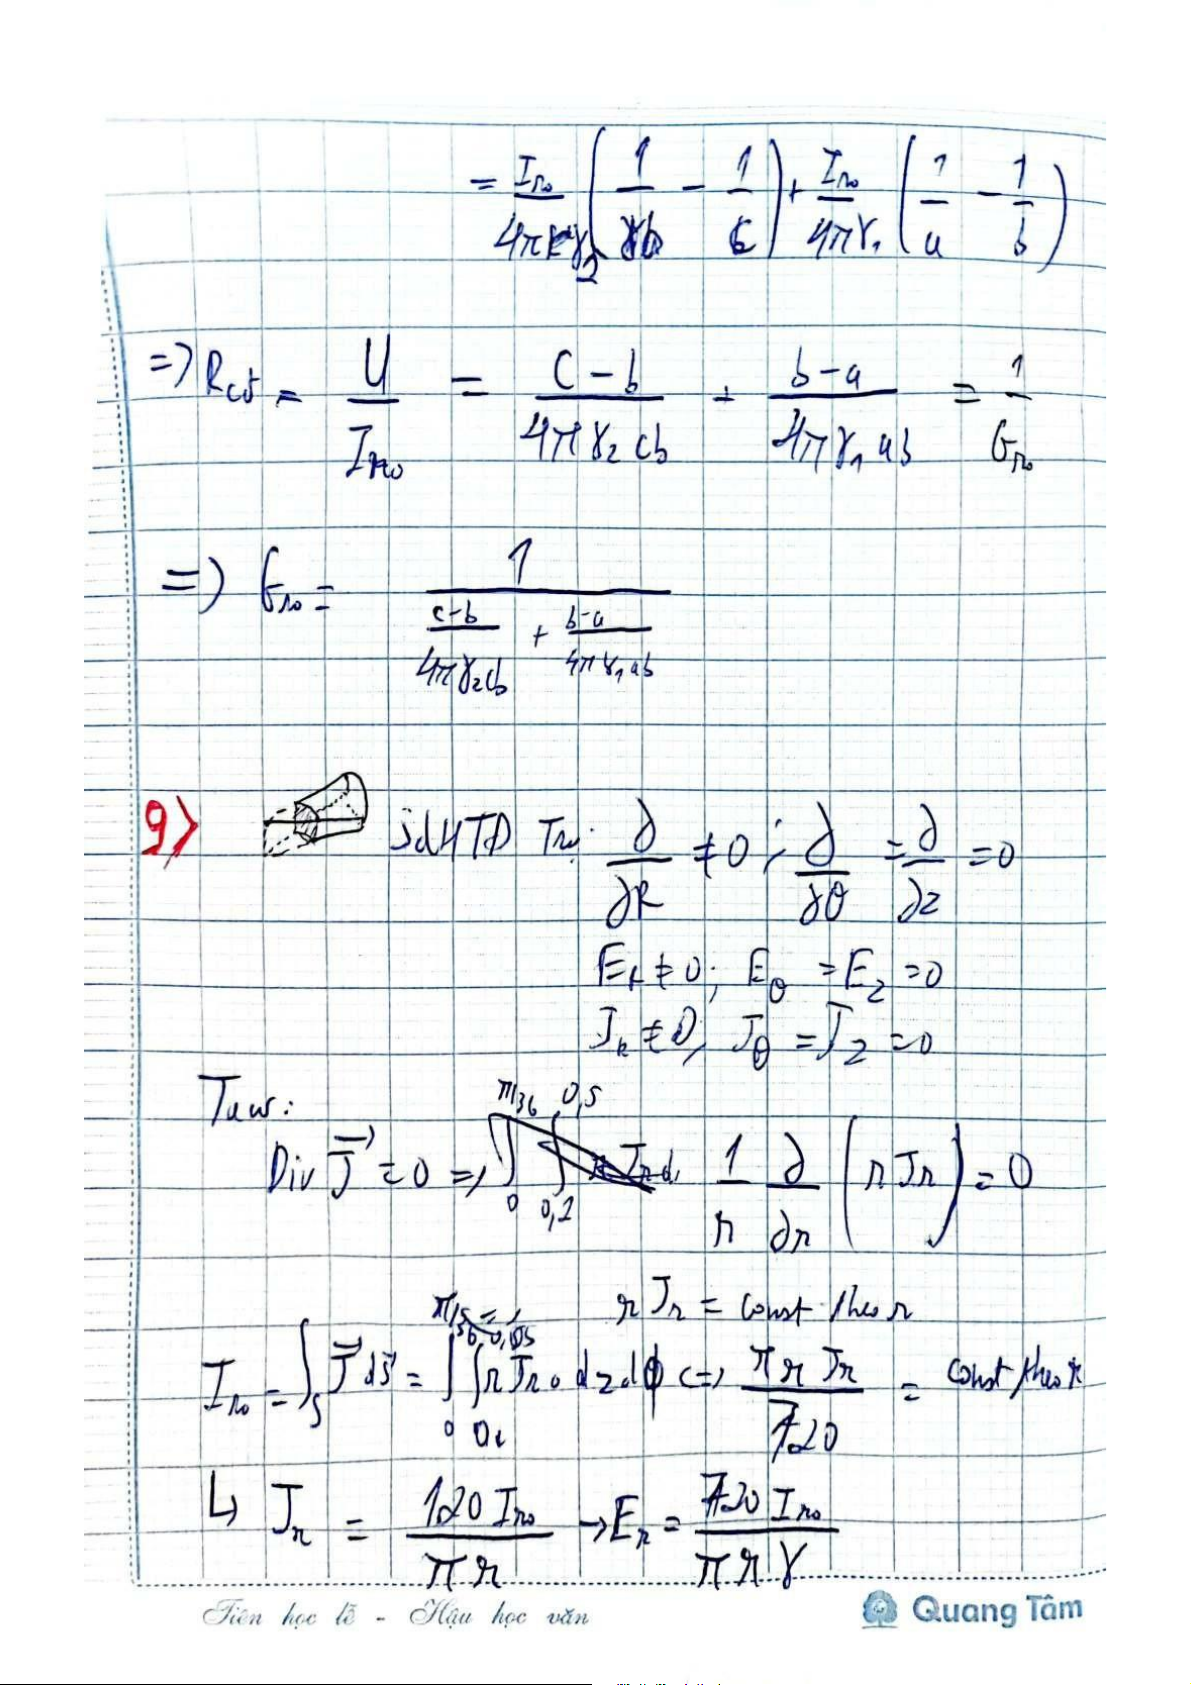 = Irò/4πγ2 (1/b − 1/c) + Irò/4πγ1 (1/a − 1/b)
=> Rcđ = U/Irò = (c−b)/(4πγ2cb) + (b−a)/(4πγ1ab) = 1/Grò
=> Grò = 1/((c−b)/(4πγ2cb) + (b−a)/(4πγ1ab))
9>
HTĐ Trụ: ∂/∂R ≠ 0 ; ∂/∂θ = ∂/∂z = 0
ER ≠ 0; Eθ = Ez = 0
JR ≠ 0, Jθ = Jz = 0
Div J⃗ = 0 => 1/r ∂/∂r (r Jr) = 0
r Jr = const theo r
Irò = ∫S J⃗ ds⃗ = ∫∫ r Jrò dz dϕ <=> πr Jr/720 = const theo r
↳ Jr = 720 Irò/πr → Er = 720 Irò/πrγ
Tiên học lễ - Hậu học văn
Quang Tâm